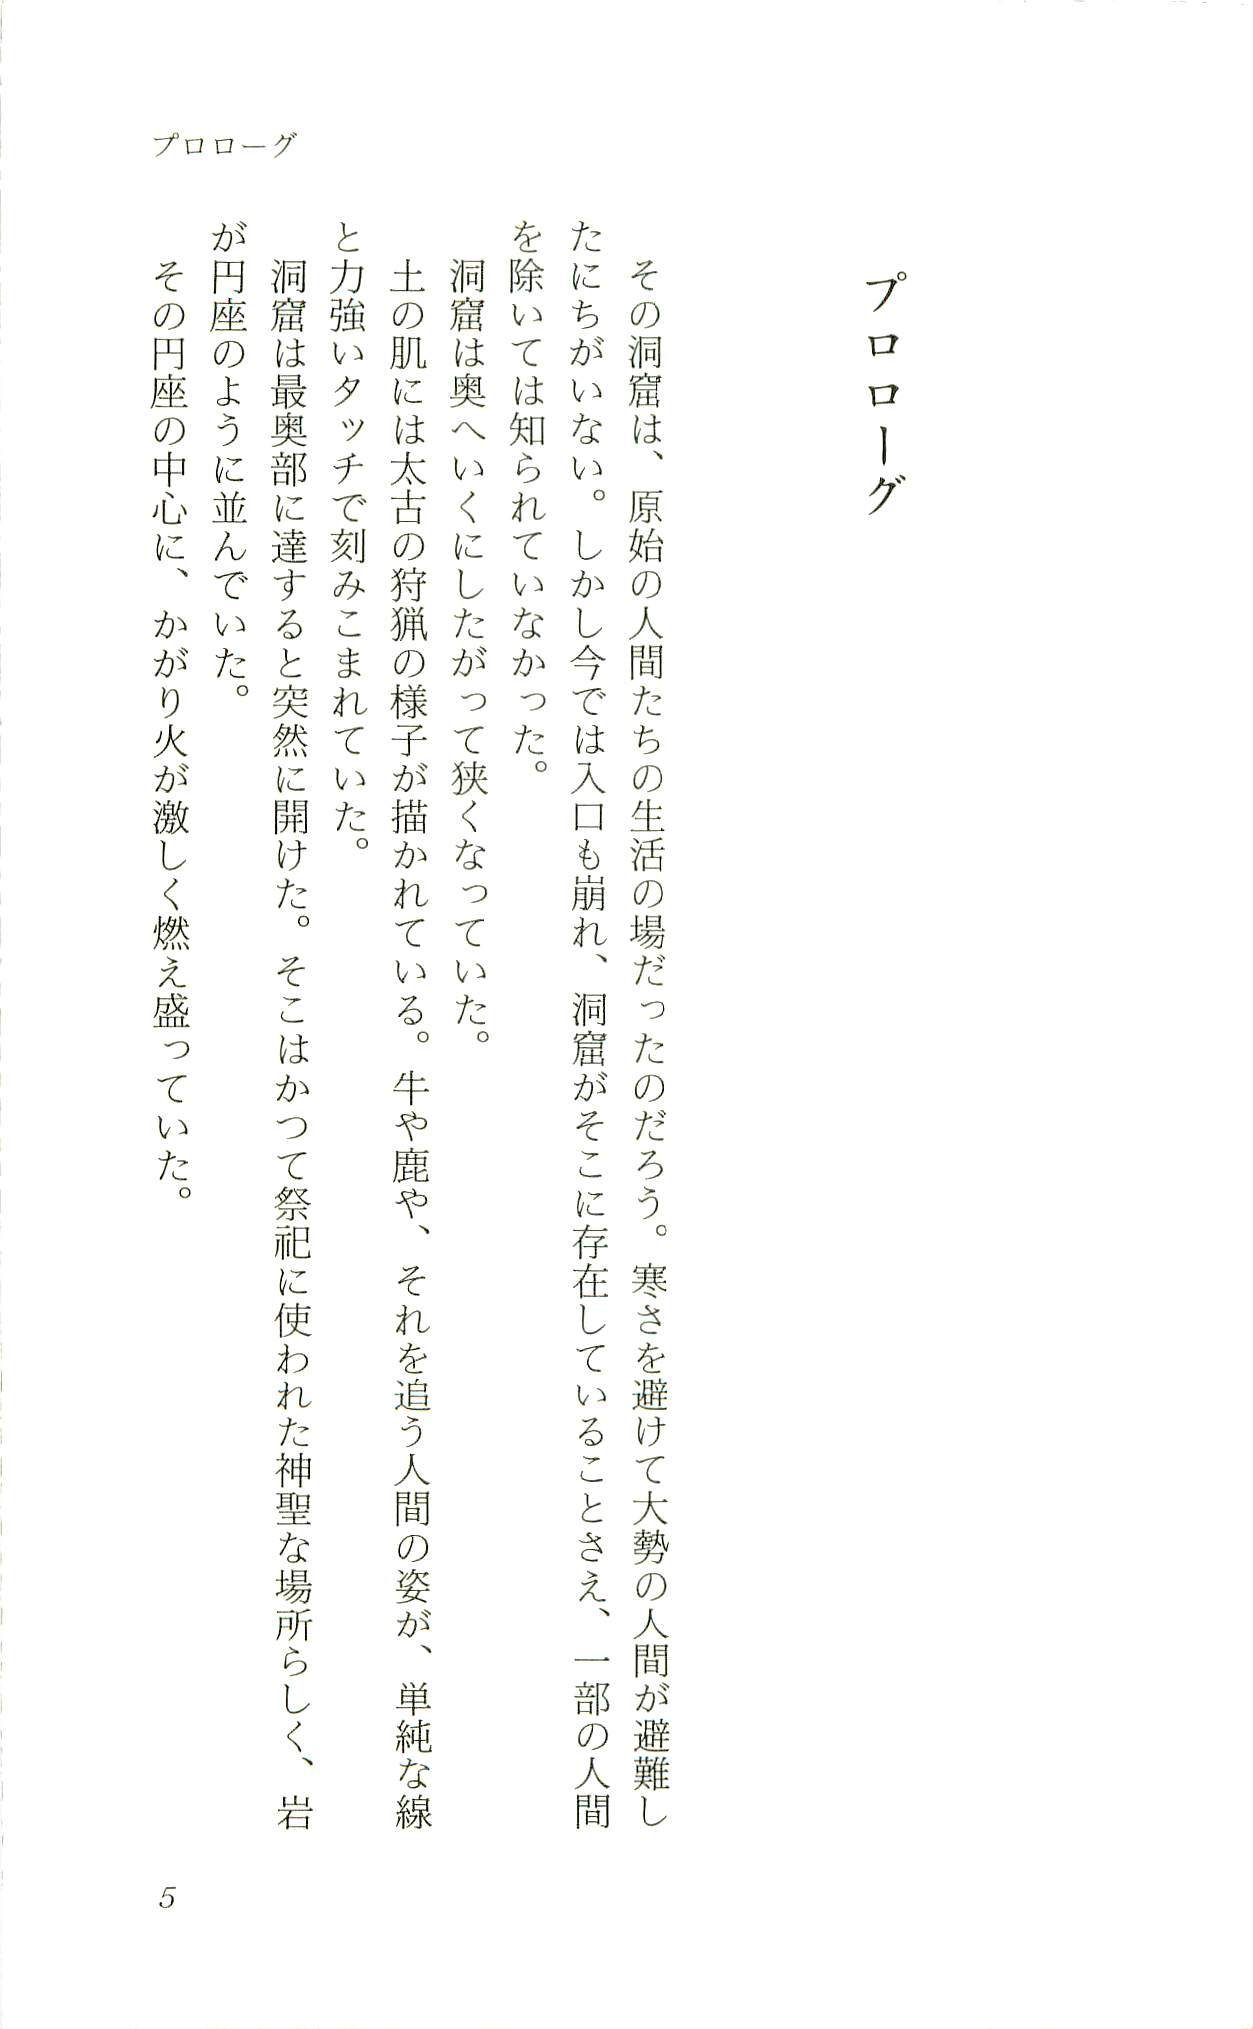 プロローグ
プロローグ
その洞窟は、原始の人間たちの生活の場だったのだろう。寒さを避けて大勢の人間が避難し
たにちがいない。しかし今では入口も崩れ、洞窟がそこに存在していることさえ、一部の人間
を除いては知られていなかった。
洞窟は奥へいくにしたがって狭くなっていた。
土の肌には太古の狩猟の様子が描かれている。牛や鹿や、それを追う人間の姿が、単純な線
と力強いタッチで刻みこまれていた。
洞窟は最奥部に達すると突然に開けた。そこはかつて祭祀に使われた神聖な場所らしく、岩
が円座のように並んでいた。
その円座の中心に、かがり火が激しく燃え盛っていた。
5